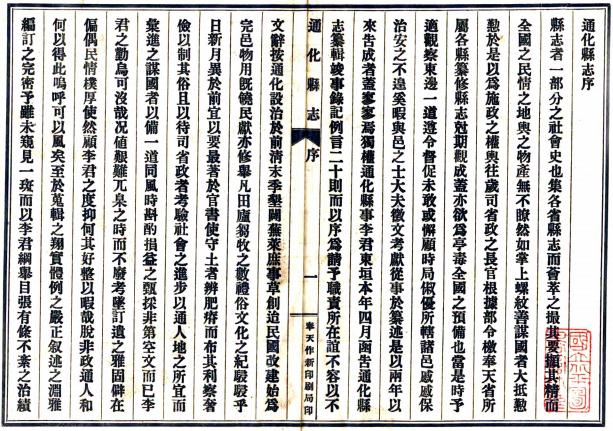 通化縣志序
縣志者一部分之社會史也集各省縣志而薈萃之撮其要擷其精而
全國之民情之地輿之物產無不瞭然如掌上螺紋善謀國者大抵懃
懃於是以為施政之權輿往歲司省政之長官根據部令檄奉天省所
屬各縣纂修縣志尅期觀成蓋亦欲為亭毒全國之預備也當是時予
適觀察東邊一道遵令督促未敢或懈顧時局俶優所轄諸邑戚戚保
治安之不遑奚暇與邑之士大夫徵文考獻從事於纂述是以兩年以
來告成者蓋寥寥焉獨權通化縣事李君東垣本年四月函告通化縣
志纂輯竣事錄記例言二十則而以序為請予職責所在誼不容以不
文辭按通化設治於前清末季墾闢蕪萊庶事草創迨民國改建始為
完邑物用既饒民獻亦修舉凡田廬芻牧之數禮俗文化之紀駸駸乎
日新月異於前宜以要最著於官書使守土者辨肥瘠而布其利察奢
儉以制其俗且以待司省政者考驗社會之進步以通人地之所宜而
彙進之謀國者以備一道同風時斟酌損益之甄採非第空文而已李
君之勤烏可沒哉况値艱難兀臬之時而不廢考墜訂遺之雅固僻在
偏偶民情樸厚使然顧李君之度抑何其好整以暇哉脫非政通人和
何以得此嗚呼可以風矣至於蒐輯之翔實體例之嚴正叙述之淵雅
編訂之完密予雖未窺見一斑而以李君綱舉目張有條不紊之治績
通化縣志
序
一
奉天作新印刷局印